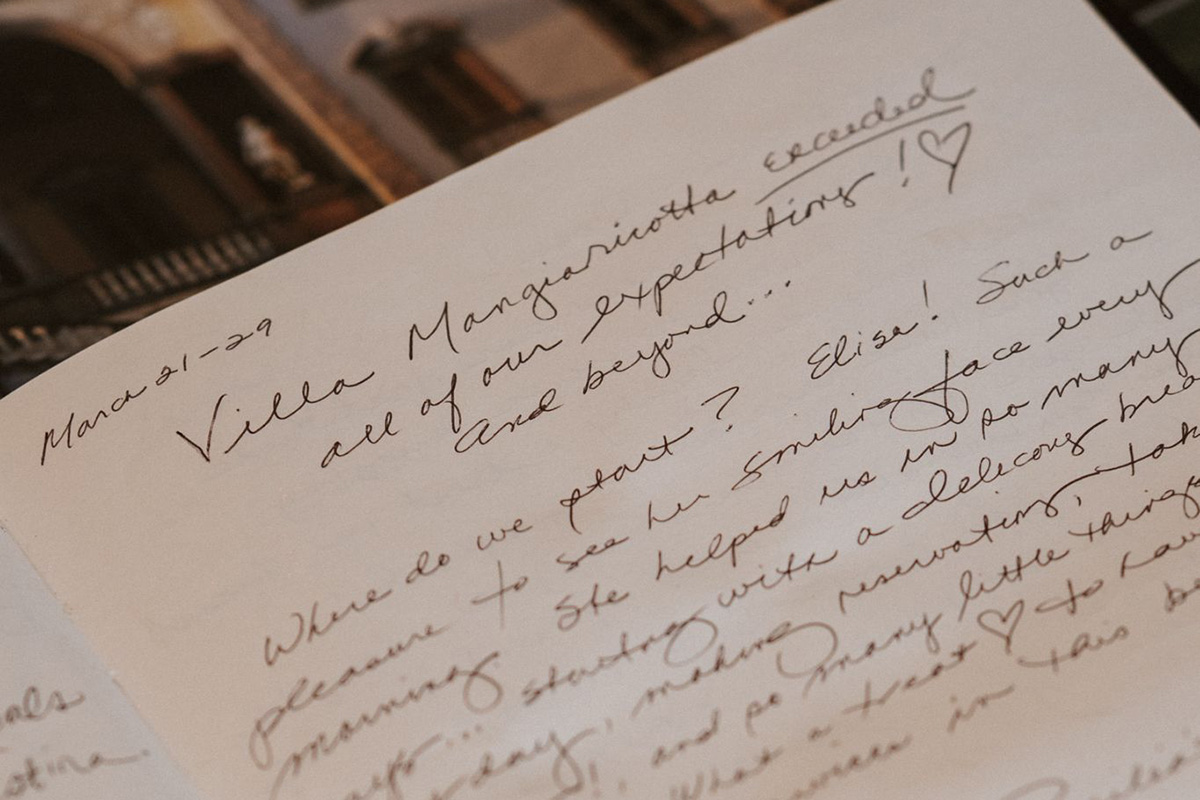 March 21-29
Villa Mangiaricotta exceeded
all of our expectations!♡
And beyond...
Where do we start? Elisa! Such a
pleasure to see her smiling face every
morning She helped us in so many
ways... starting with a delicous brea
day, making reservations, tak
and so many little things
What a treat ♡ to have
services in this be